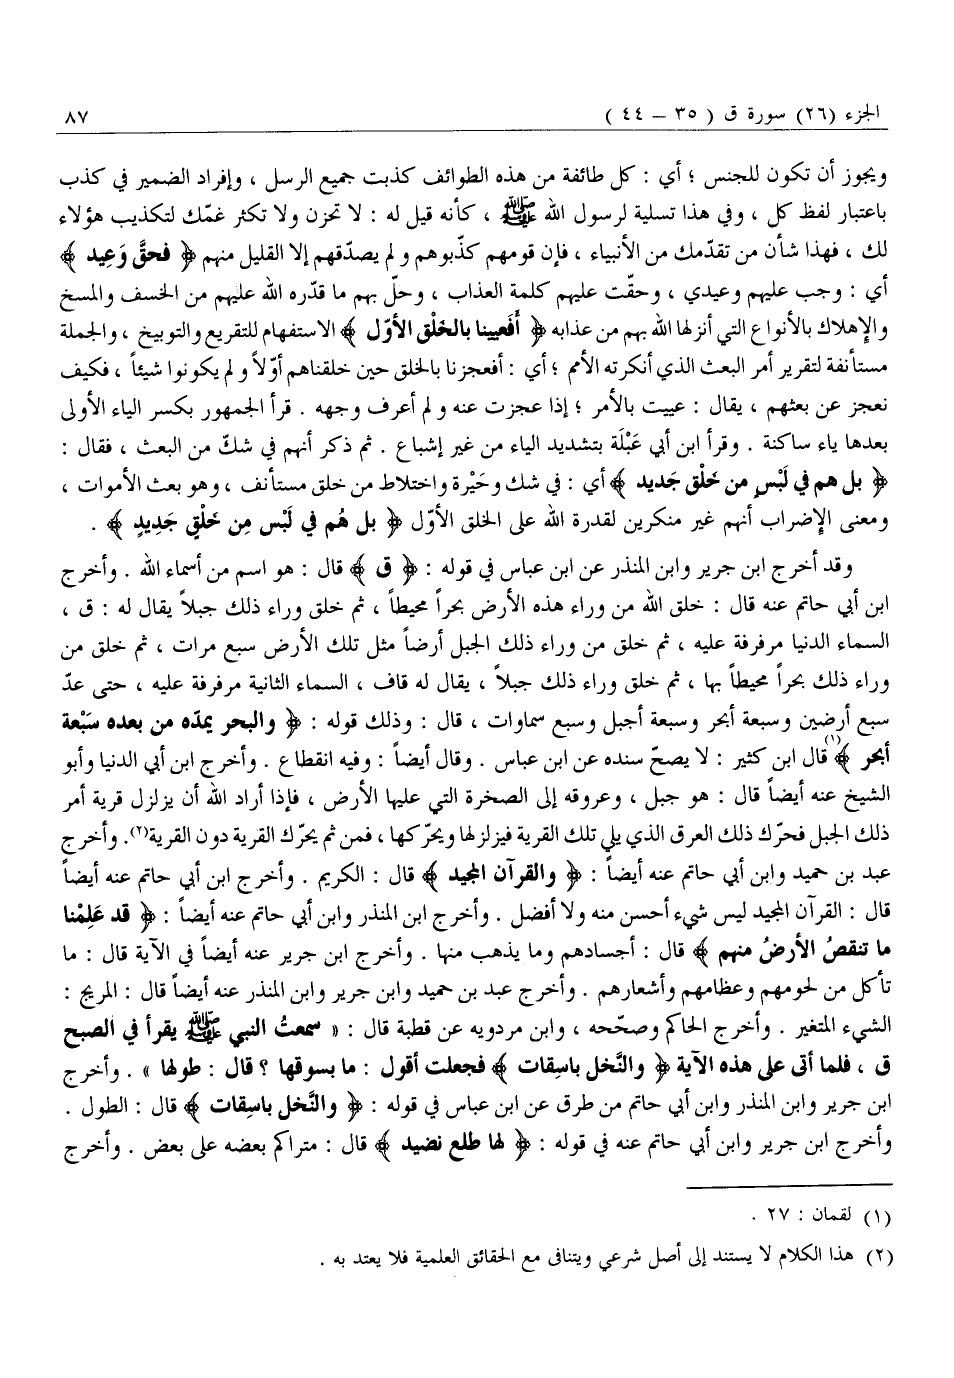 الجزء (٢٦) سورة ق ( ٣٥ – ٤٤ ) ٨٧
ويجوز أن تكون للجنس ؛ أي : كل طائفة من هذه الطوائف كذبت جميع الرسل ، وإفراد الضمير في كذب
باعتبار لفظ كل ، وفي هذا تسلية لرسول الله ﷺ ، كأنه قيل له : لا تحزن ولا تكثر غمّك لتكذيب هؤلاء
لك ، فهذا شأن من تقدّمك من الأنبياء ، فإن قومهم كذّبوهم ولم يصدّقهم إلا القليل منهم ﴿ فحقَّ وَعِيد ﴾
أي : وجب عليهم وعيدي ، وحقّت عليهم كلمة العذاب ، وحلّ بهم ما قدّره الله عليهم من الخسف والمسخ
والإهلاك بالأنواع التي أنزلها الله بهم من عذابه ﴿ أَفَعيينا بالخَلْق الأوّل ﴾ الاستفهام للتقريع والتوبيخ ، والجملة
مستأنفة لتقرير أمر البعث الذي أنكرته الأمم ؛ أي : أفعجزنا بالخلق حين خلقناهم أوّلاً ولم يكونوا شيئاً ، فكيف
نعجز عن بعثهم ، يقال : عييت بالأمر ؛ إذا عجزت عنه ولم أعرف وجهه . قرأ الجمهور بكسر الياء الأولى
بعدها ياء ساكنة . وقرأ ابن أبي عَبْلَة بتشديد الياء من غير إشباع . ثم ذكر أنهم في شكّ من البعث ، فقال :
﴿ بل هم في لَبْسٍ من خَلْق جَديد ﴾ أي : في شك وحَيْرة واختلاط من خلق مستأنف ، وهو بعث الأموات ،
ومعنى الإضراب أنهم غير منكرين لقدرة الله على الخلق الأوّل ﴿ بل هُم في لَبْس مِن خَلْقٍ جَدِيدٍ ﴾ .
وقد أخرج ابن جرير وابن المنذر عن ابن عباس في قوله : ﴿ ق ﴾ قال : هو اسم من أسماء الله . وأخرج
ابن أبي حاتم عنه قال : خلق الله من وراء هذه الأرض بحراً محيطاً ، ثم خلق وراء ذلك جبلاً يقال له : ق ،
السماء الدنيا مرفرفة عليه ، ثم خلق من وراء ذلك الجبل أرضاً مثل تلك الأرض سبع مرات ، ثم خلق من
وراء ذلك بحراً محيطاً بها ، ثم خلق وراء ذلك جبلاً ، يقال له قاف ، السماء الثانية مرفرفة عليه ، حتى عدّ
سبع أرضين وسبعة أبحر وسبعة أجبل وسبع سماوات ، قال : وذلك قوله : ﴿ والبحر يمدّه من بعده سَبْعة
أبحر ﴾(١) قال ابن كثير : لا يصحّ سنده عن ابن عباس . وقال أيضاً : وفيه انقطاع . وأخرج ابن أبي الدنيا وأبو
الشيخ عنه أيضاً قال : هو جبل ، وعروقه إلى الصخرة التي عليها الأرض ، فإذا أراد الله أن يزلزل قرية أمر
ذلك الجبل فحرّك ذلك العرق الذي يلي تلك القرية فيزلزلها ويحرّكها ، فمن ثم يحرّك القرية دون القرية(٢). وأخرج
عبد بن حميد وابن أبي حاتم عنه أيضاً : ﴿ والقرآن المجيد ﴾ قال : الكريم . وأخرج ابن أبي حاتم عنه أيضاً
قال : القرآن المجيد ليس شيء أحسن منه ولا أفضل . وأخرج ابن المنذر وابن أبي حاتم عنه أيضاً : ﴿ قد عَلِمْنا
ما تنقصُ الأرضُ منهم ﴾ قال : أجسادهم وما يذهب منها . وأخرج ابن جرير عنه أيضاً في الآية قال : ما
تأكل من لحومهم وعظامهم وأشعارهم . وأخرج عبد بن حميد وابن جرير وابن المنذر عنه أيضاً قال : المريج :
الشيء المتغير . وأخرج الحاكم وصحّحه ، وابن مردويه عن قطبة قال : « سمعتُ النبي ﷺ يقرأ في الصبح
ق ، فلما أتى على هذه الآية ﴿ والنَّخل باسِقات ﴾ فجعلت أقول : ما بسوقها ؟ قال : طولها » . وأخرج
ابن جرير وابن المنذر وابن أبي حاتم من طرق عن ابن عباس في قوله : ﴿ والنَّخل باسِقات ﴾ قال : الطول .
وأخرج ابن جرير وابن أبي حاتم عنه في قوله : ﴿ لها طلع نضيد ﴾ قال : متراكم بعضه على بعض . وأخرج
(١) لقمان : ٢٧ .
(٢) هذا الكلام لا يستند إلى أصل شرعي ويتنافى مع الحقائق العلمية فلا يعتد به .